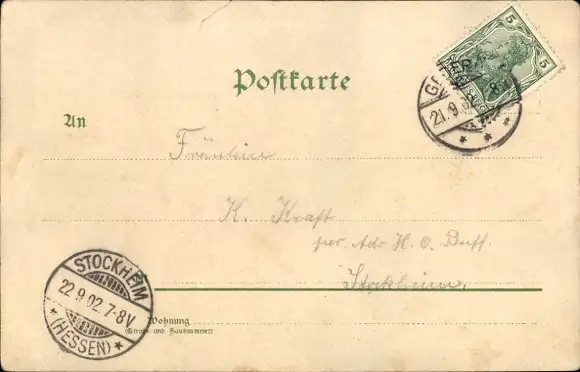 Postkarte
5 5
21.9.
An
Fräulein
K. Kraft
per Adr H. O. Buff.
Stockheim.
STOCKHEIM
22.9.02.7-8V
* (HESSEN) *
Wohnung
(Straße und Hausnummer)